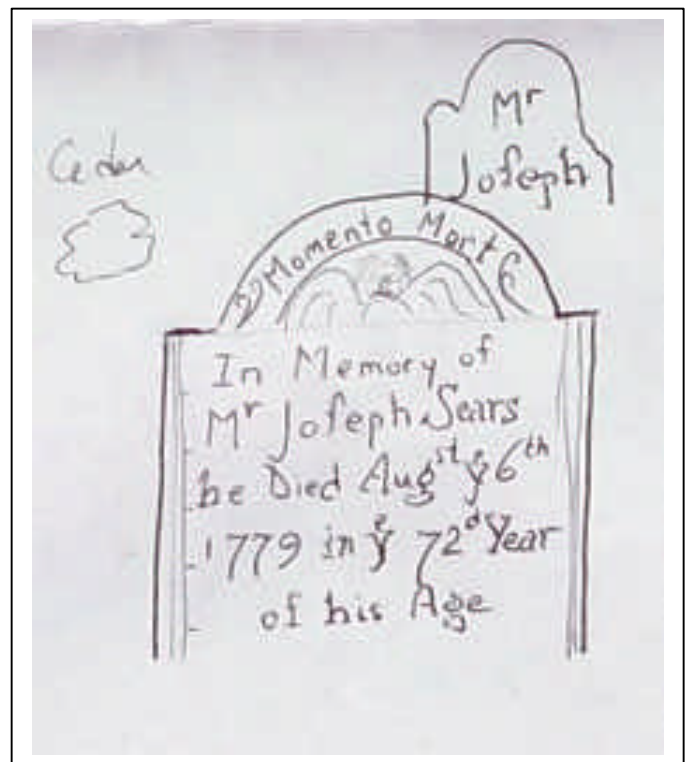 Mr
Joſeph
Ceder
Momento Mort
In Memory of
Mr Joſeph Sears
he Died Augst ye 6th
1779 in ye 72d Year
of his Age